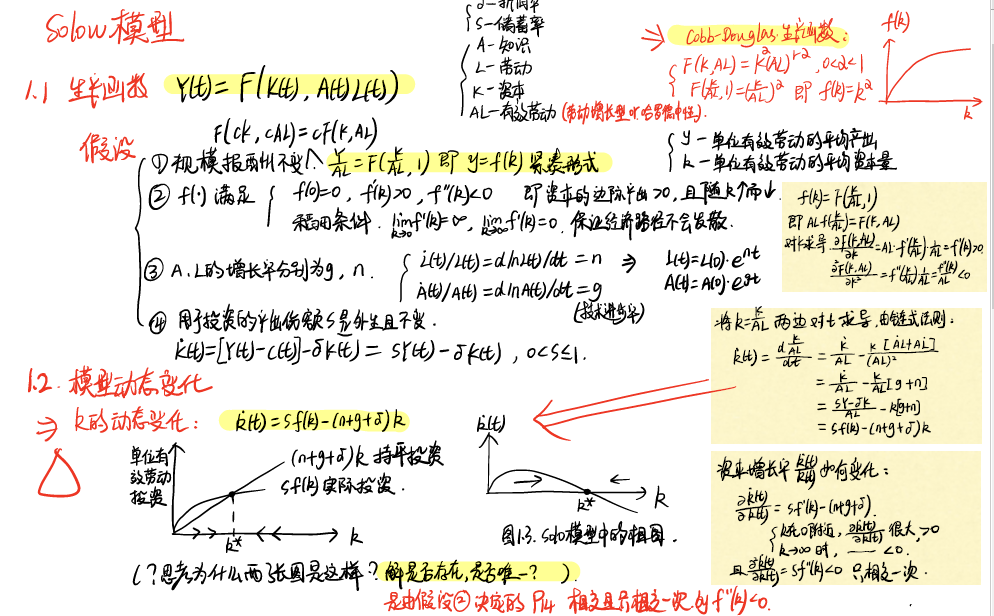 Solow模型
δ—折旧率
S—储蓄率
A—知识
L—劳动
K—资本
AL—有效劳动 (劳动增长型 or 哈罗德中性)
⇒ Cobb-Douglas 生产函数:
F(K,AL)=K^α(AL)^{1-α}, 0<α<1
F(K/AL,1)=(K/AL)^α 即 f(k)=k^α
f(k)
k
1.1 生产函数 Y(t)=F(K(t), A(t)L(t))
假设
F(cK, cAL)=cF(K,AL)
① 规模报酬不变 Y/AL=F(K/AL, 1) 即 y=f(k) 紧凑形式
y—单位有效劳动的平均产出
k—单位有效劳动的平均资本量
② f(·)满足 f(0)=0, f'(k)>0, f''(k)<0 即资本的边际产出>0, 且随k↑而↓
稻田条件 lim_{k→0}f'(k)=∞, lim_{k→∞}f'(k)=0, 保证经济路径不会发散.
f(k)=F(K/AL,1)
即 ALf(K/AL)=F(K,AL)
对K求导 ∂F(K,AL)/∂K=AL·f'(K/AL)·1/AL=f'(k)>0.
∂²F(K,AL)/∂K²=f''(K/AL)1/AL=f''(k)/AL<0
③ A、L的增长率分别为g, n.
L̇(t)/L(t)=dlnL(t)/dt=n ⇒ L(t)=L(0)·e^{nt}
Ȧ(t)/A(t)=dlnA(t)/dt=g A(t)=A(0)·e^{gt}
(技术进步率)
④ 用于投资的产出份额S是外生且不变.
K̇(t)=[Y(t)-C(t)]-δK(t)=SY(t)-δK(t), 0<S≤1.
将k=K/AL 两边对t求导, 由链式法则:
k̇(t)=d(K/AL)/dt=K̇/AL-K[ȦL+AL̇]/(AL)²
=K̇/AL-K/AL[g+n]
=(SY-δK)/AL-k[g+n]
=sf(k)-(n+g+δ)k
1.2. 模型动态变化
⇒ k的动态变化: k̇(t)=sf(k)-(n+g+δ)k
单位有效劳动投资
(n+g+δ)k 持平投资
sf(k)实际投资.
k*
k
k̇(t)
k*
k
图1.3. Solo模型中的相图.
资本增长率 如何变化:
∂k̇(t)/∂k(t)=sf'(k)-(n+g+δ).
k在0附近, ∂k̇(t)/∂k(t) 很大,>0
k→∞时, —— <0.
且 =sf''(k)<0 只相交一次.
(?思考为什么两张图是这样? 解是否存在,是否唯一? ).
是由假设②决定的 相交且只相交一次 f''(k)<0.